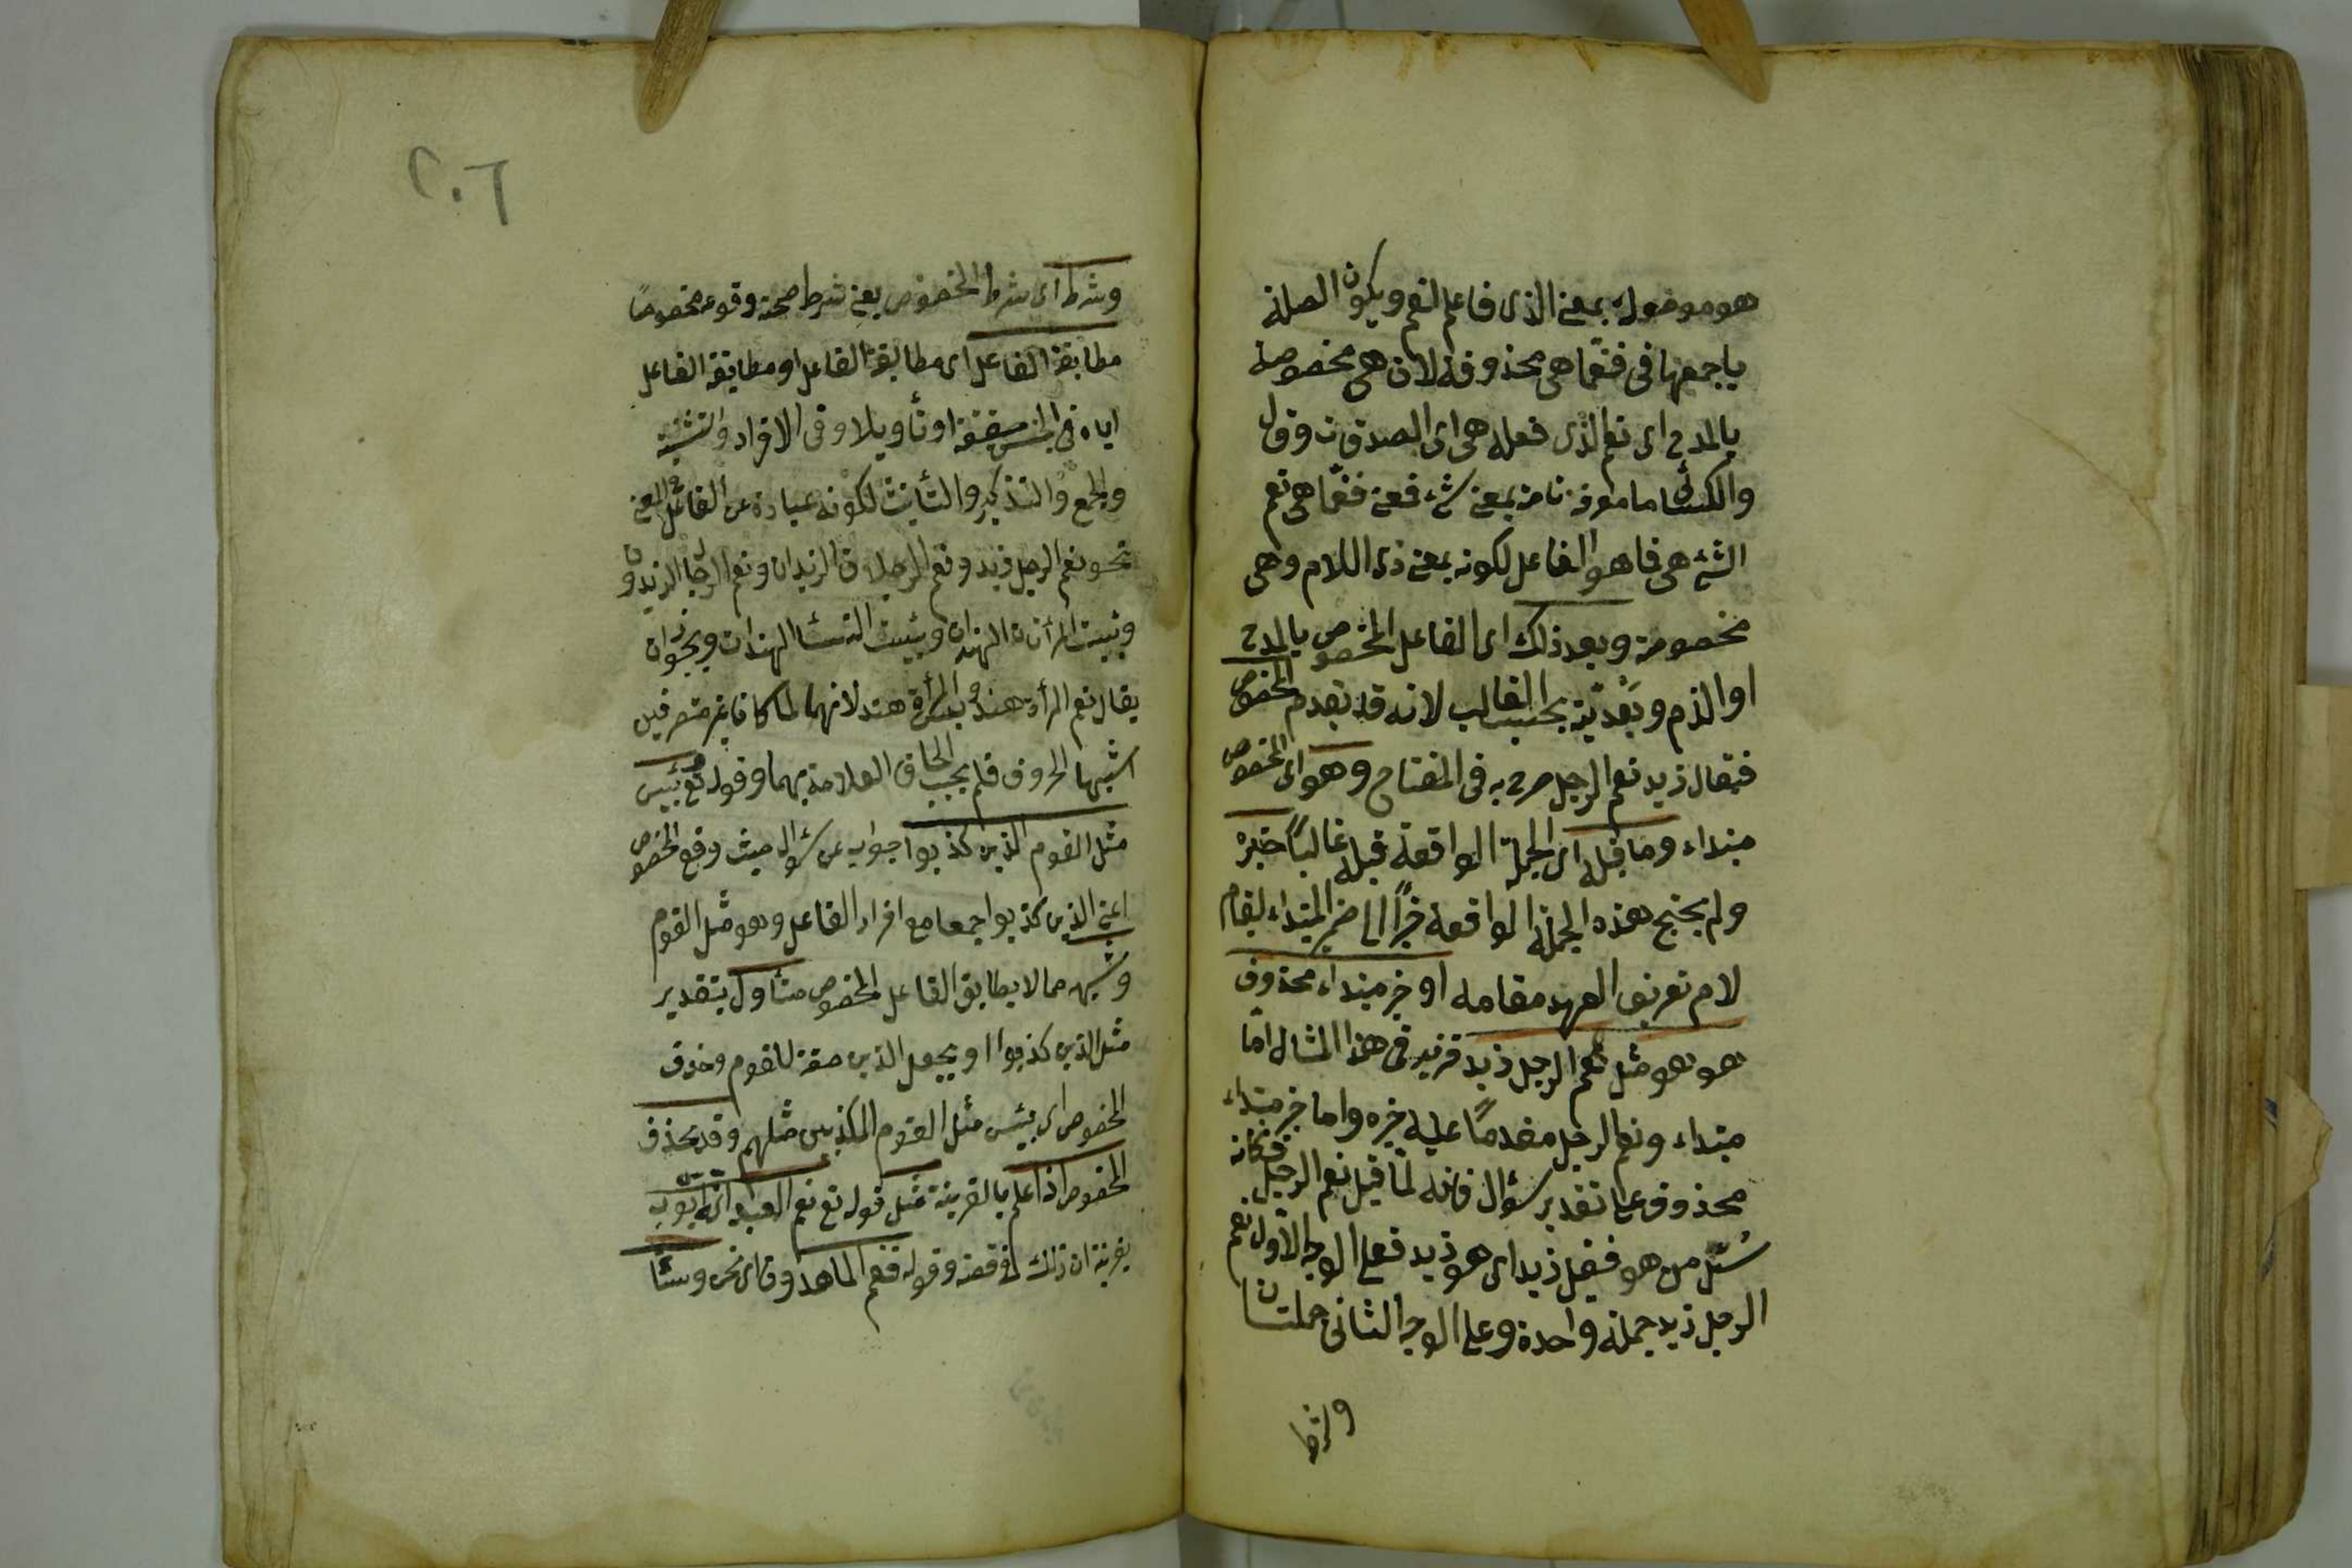 هو موصولة بمعنى الذى فاعل لنعم ويكون الصلة
باجمعها فى فنعمّا هى محذوفة لان هى مخصوصة
بالمدح اى نعم الذى فعله هى اى الصدقات وقال
والكسائى ما معرفة تامة بمعنى شئ فمعنى فنعمّا هى نعم
الشئ هى فما هو الفاعل لكونه بمعنى ذى اللام وهى
مخصوصة وبعد ذلك اى الفاعل المخصوص بالمدح
او الذم وبَعْديّته بحسب الغالب لانه قد يتقدم المخصوص
فيقال زيد نعم الرجل صرح به فى المفتاح وهو اى المخصوص
مبتداء وما قبله اى الجملة الواقعة قبله غالبًا خبره
ولم يحتج هذه الجملة الواقعة خبرًا الى ضمير المبتداء لقيام
لام تعريف العهد مقامه او خبر مبتداء محذوف
هو هو مثل نعم الرجل زيد فزيد فى هذا المثال امّا
مبتداء ونعم الرجل مقدمًا عليه خبره واما خبر مبتداء
محذوف على تقدير سؤال فانه لمّا قيل نعم الرجل فكانه
سُئل من هو فقيل زيد اى هو زيد فعلى الوجه الاوّل نعم
الرجل زيد جملة واحدة وعلى الوجه الثانى جملتان
وشرط
٢٠٦
وشرط اى شرط المخصوص يعنى شرط صحة وقوعه مخصوصًا
مطابقة الفاعل اى مطابقة الفاعل او مطابقة الفاعل
اياه فى الجنس حقيقة او تأويلا وفى الافراد والتثنية
والجمع والتذكير والتأنيث لكونه عبارة عن الفاعل فى المعنى
نحو نعم الرجل زيد ونعم الرجلان الزيدان ونعم الرجال الزيدون
وبئست المرأتان الهندان وبئست النساء الهندات ويجوز ان
يقال نعم المرأة هند وبئس المرأة هند لانهما لما كانا غير متصرفين
اشبها الحروف فلم يجب الحاق العلامة بهما وقوله تع بئس
مثل القوم الذين كذبوا جواب عن سؤال حيث وقع المخصوص
اعنى الذين كذبوا جمعا مع افراد الفاعل وهو مثل القوم
وشبهه مما لا يطابق الفاعل المخصوص متأول بتقدير
مثل الذين كذبوا او يجعل الذين صفة للقوم وحذف
المخصوص اى بئس مثل القوم المكذبين مثلهم وقد يحذف
المخصوص اذا علم بالقرينة مثل قوله تع نعم العبد اى ايّوب
بقرينة ان ذلك فى قصته وقوله فنعم الماهدون اى نحن وساء